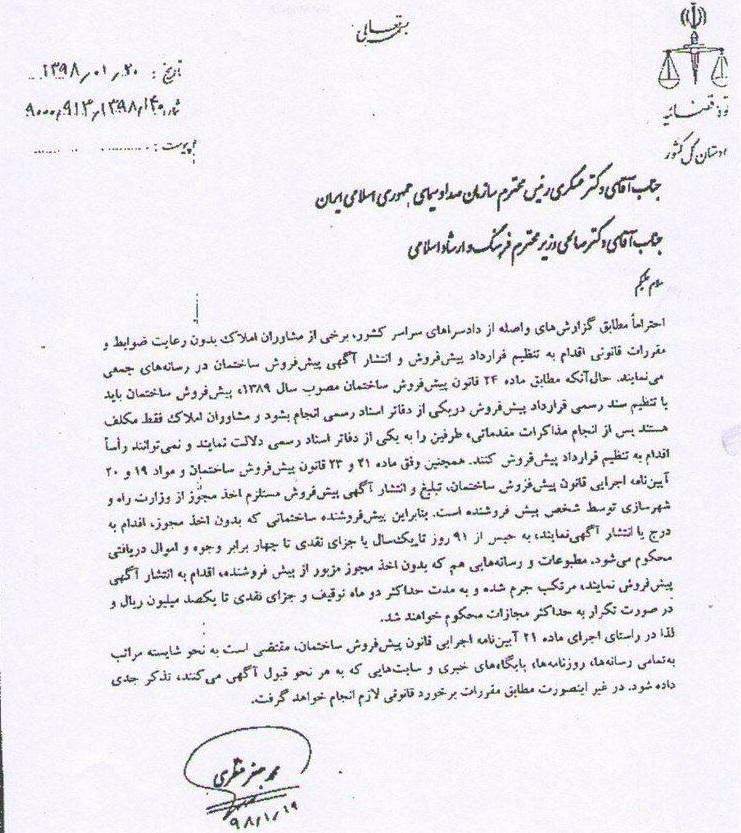 بسمه تعالی
قوه قضائیه
دادستان کل کشور
تاریخ: ۱۳۹۸/۰۱/۲۰
شماره: ۹۰۰۰/۹۱۳/۱۳۹۸/۱۴۰
پیوست:
جناب آقای دکتر عسکری رئیس محترم سازمان صدا و سیمای جمهوری اسلامی ایران
جناب آقای دکتر صالحی وزیر محترم فرهنگ و ارشاد اسلامی
سلام علیکم
احتراماً مطابق گزارش‌های واصله از دادسراهای سراسر کشور، برخی از مشاوران املاک بدون رعایت ضوابط و
مقررات قانونی اقدام به تنظیم قرارداد پیش‌فروش و انتشار آگهی پیش‌فروش ساختمان در رسانه‌های جمعی
می‌نمایند. حال‌آنکه مطابق ماده ۲۴ قانون پیش‌فروش ساختمان مصوب سال ۱۳۸۹، پیش‌فروش ساختمان باید
با تنظیم سند رسمی قرارداد پیش‌فروش در‌یکی از دفاتر اسناد رسمی انجام بشود و مشاوران املاک فقط مکلف
هستند پس از انجام مذاکرات مقدماتی، طرفین را به یکی از دفاتر اسناد رسمی دلالت نمایند و نمی‌توانند رأساً
اقدام به تنظیم قرارداد پیش‌فروش کنند. همچنین وفق ماده ۲۱ و ۲۳ قانون پیش‌فروش ساختمان و مواد ۱۹ و ۲۰
آیین‌نامه اجرایی قانون پیش‌فروش ساختمان، تبلیغ و انتشار آگهی پیش‌فروش مستلزم اخذ مجوز از وزارت راه و
شهرسازی توسط شخص پیش فروشنده است. بنابراین پیش‌فروشنده ساختمانی که بدون اخذ مجوز، اقدام به
درج یا انتشار آگهی‌نمایند، به حبس از ۹۱ روز تا‌یک‌سال یا جزای نقدی تا چهار برابر وجوه و اموال دریافتی
محکوم می‌شود. مطبوعات و رسانه‌هایی هم که بدون اخذ مجوز مزبور از پیش فروشنده، اقدام به انتشار آگهی
پیش‌فروش نمایند، مرتکب جرم شده و به مدت حداکثر دو ماه توقیف و جزای نقدی تا یکصد میلیون ریال و
در صورت تکرار به حداکثر مجازات محکوم خواهند شد.
لذا در راستای اجرای ماده ۲۱ آیین‌نامه اجرایی قانون پیش‌فروش ساختمان، مقتضی است به نحو شایسته مراتب
به‌تمامی رسانه‌ها، روزنامه‌ها، پایگاه‌های خبری و سایت‌هایی که به هر نحو قبول آگهی می‌کنند، تذکر جدی
داده شود. در غیر اینصورت مطابق مقررات برخورد قانونی لازم انجام خواهد گرفت.
محمد جعفر منتظری
۹۸/۱/۱۹